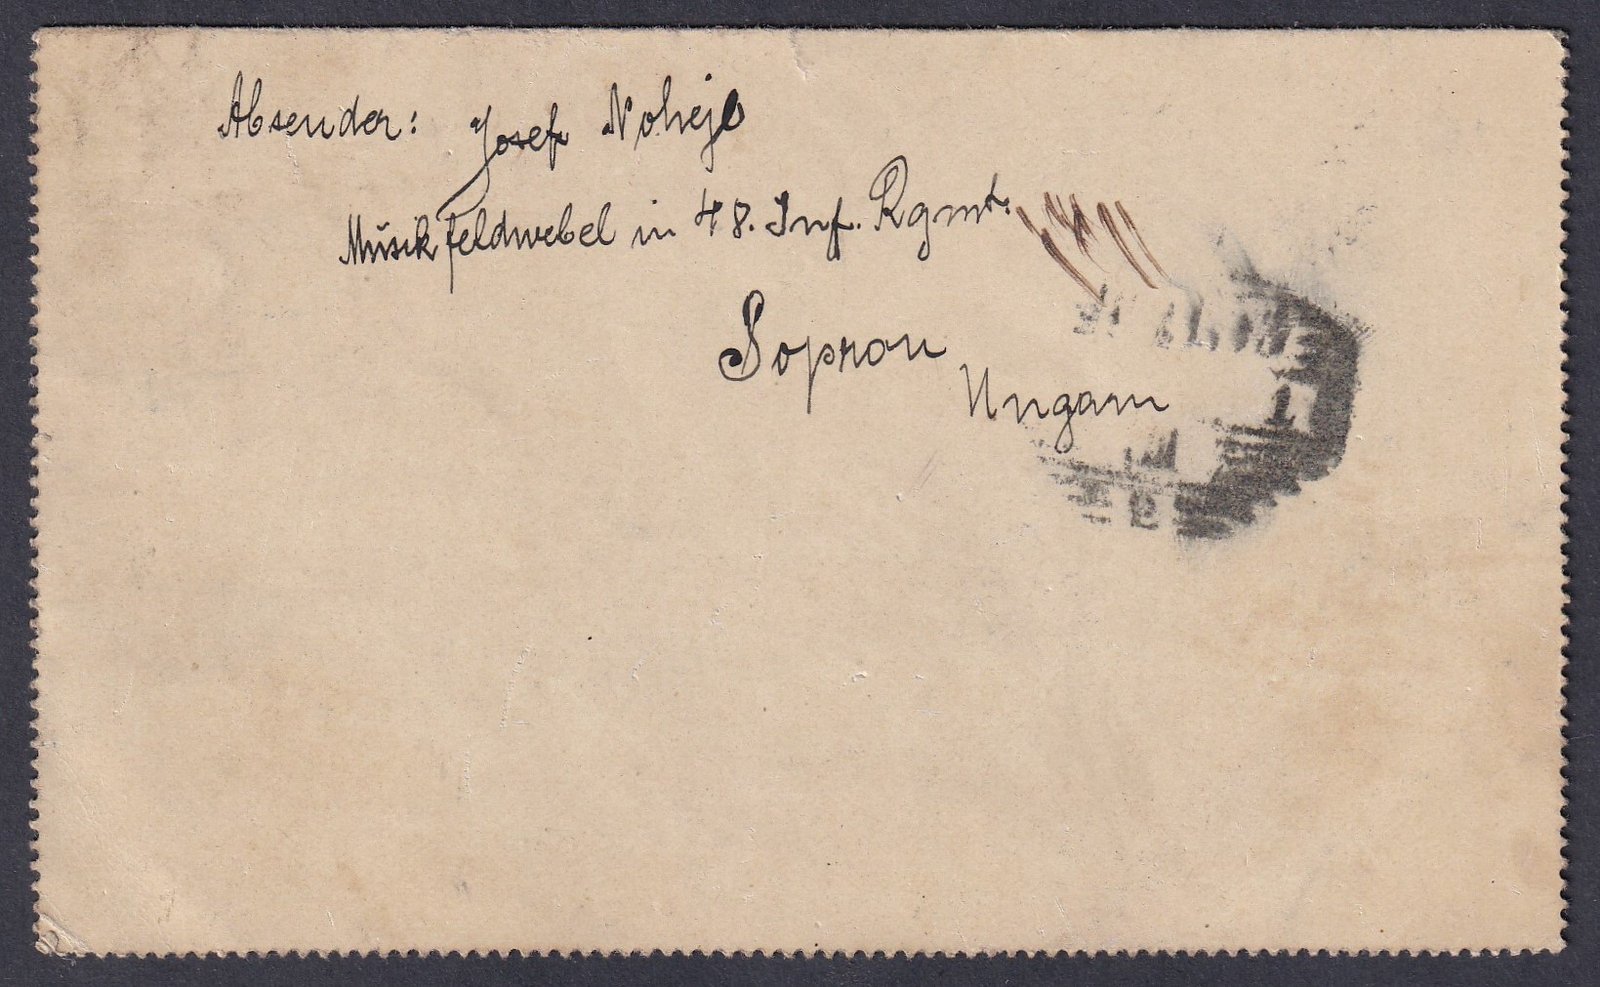 Absender: Josef Nohejl
Musikfeldwebel in 48. Inf. Rgmt.
Sopron
Ungarn